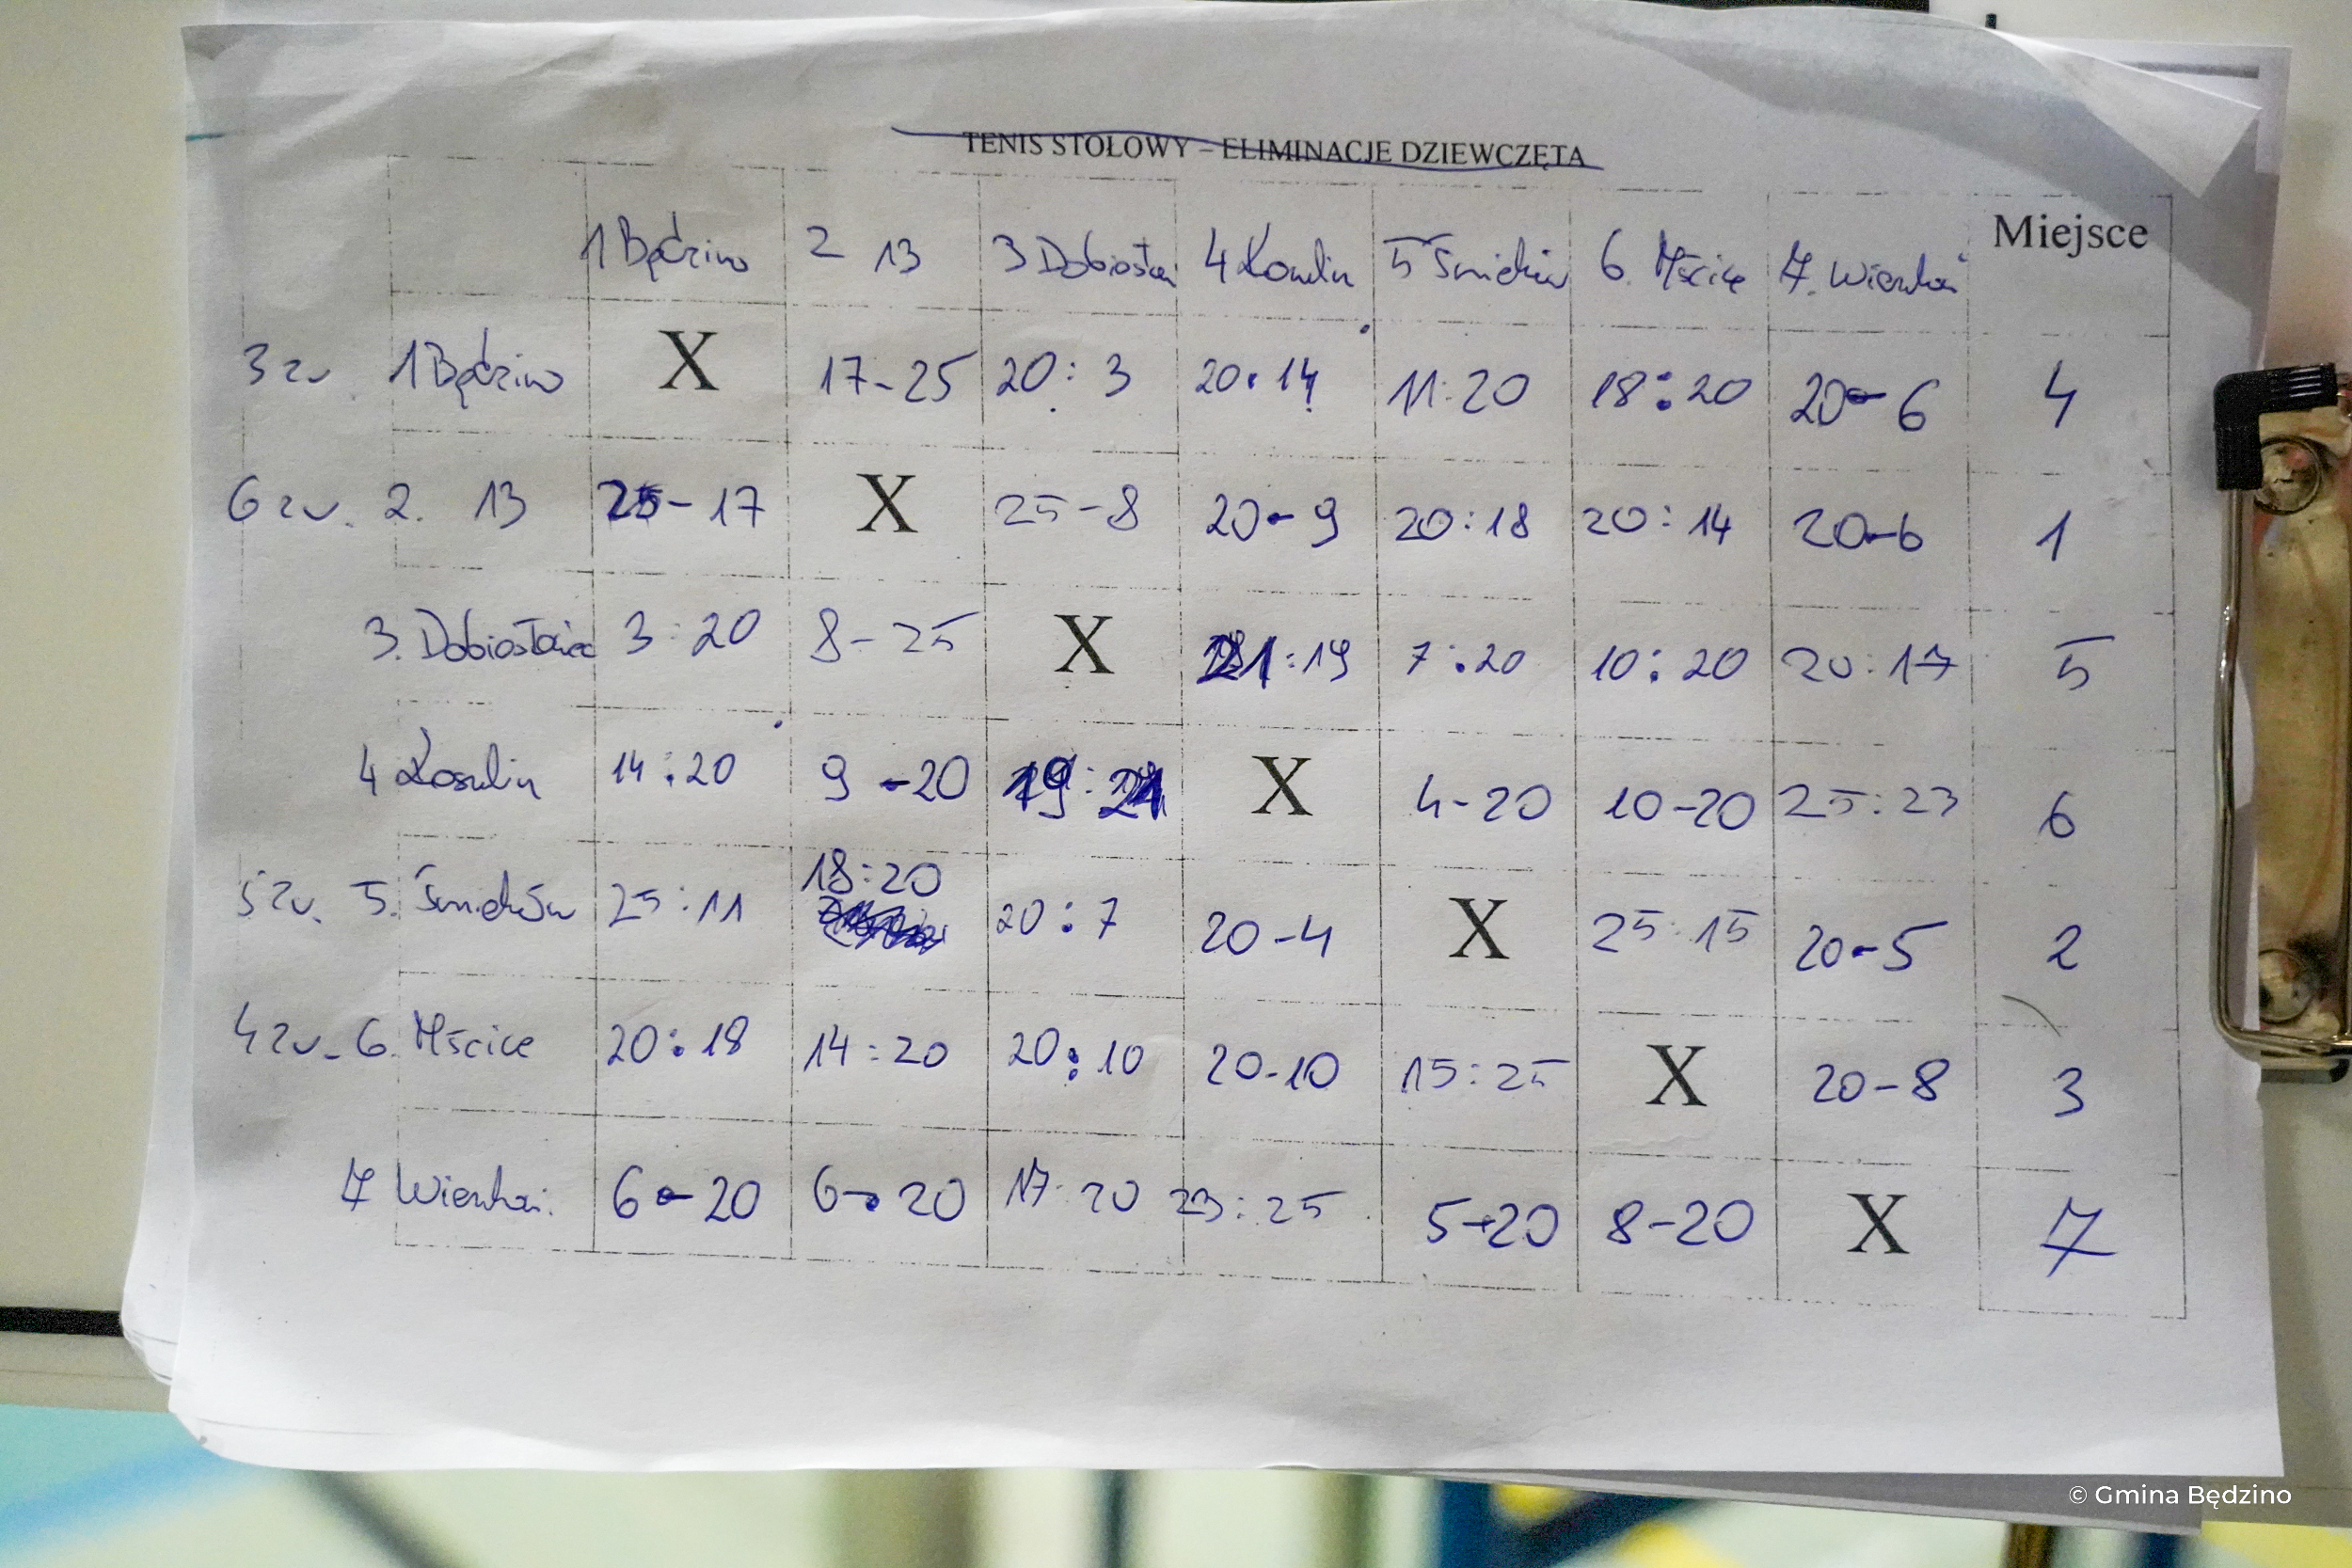 TENIS STOŁOWY – ELIMINACJE DZIEWCZĘTA
1 Będzino 2 13 3 Dobiesław 4 Łosulin 5 Śmiechów 6. Mścice 7. Miejsce
3 zw. 1 Będzino X 17-25 20:3 20:14 11:20 18:20 20-6 4
6 zw. 2. 13 25-17 X 25-8 20-9 20:18 20:14 20-6 1
3. 3:20 8-25 X 21:19 7:20 10:20 20:17 5
4 14:20 9-20 19:21 X 4-20 10-20 25:23 6
5 zw. 5. Śmiechów 25:11 18:20 20:7 20-4 X 25:15 20-5 2
4 zw. 6. Mścice 20:18 14:20 20:10 20-10 15:25 X 20-8 3
7 6-20 6-20 17:20 23:25 5-20 8-20 X 7
© Gmina Będzino